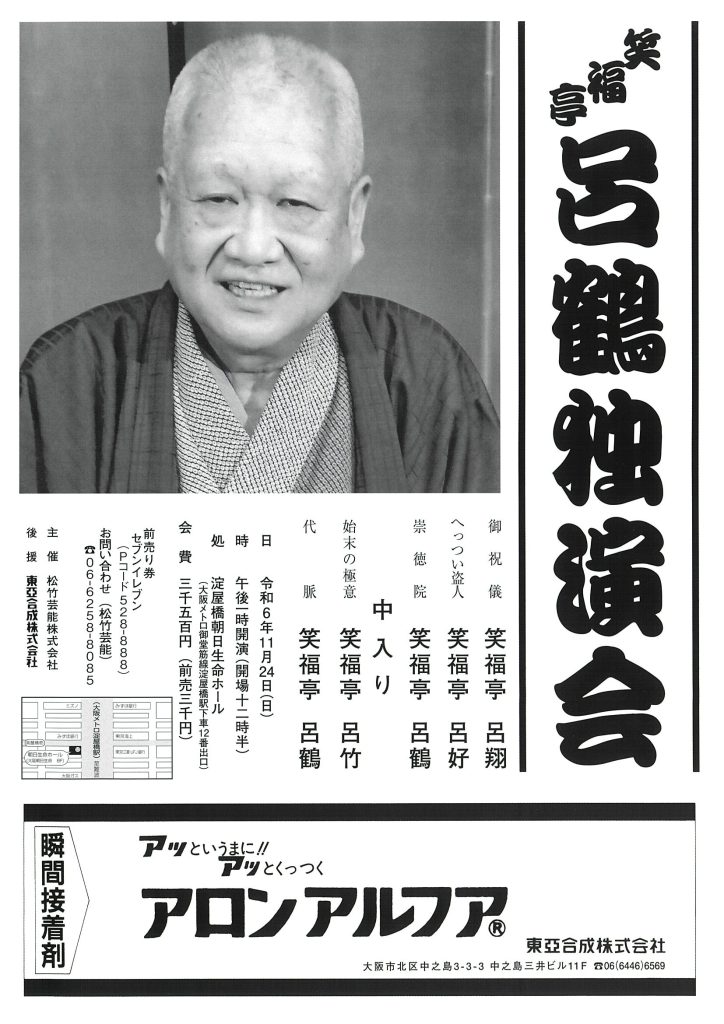 笑福亭
呂鶴独演会
御祝儀 笑福亭 呂翔
へっつい盗人 笑福亭 呂好
崇徳院 笑福亭 呂鶴
中入り
始末の極意 笑福亭 呂竹
代脈 笑福亭 呂鶴
日 令和6年11月24日(日)
時 午後一時開演(開場十二時半)
処 淀屋橋朝日生命ホール
(大阪メトロ御堂筋線淀屋橋駅下車12番出口)
会費 三千五百円(前売三千円)
前売り券
セブンイレブン
(Pコード528-888)
お問い合わせ(松竹芸能)
☎06-6258-8085
主催 松竹芸能株式会社
後援 東亞合成株式会社
ミズノ
みずほ銀行
みずほ銀行
東京海上
(大阪メトロ淀屋橋駅)
朝日生命ホール
(大阪朝日生命 8F)
大阪ガス
瞬間接着剤
アッというまに!!
アッとくっつく
アロンアルフア®
東亞合成株式会社
大阪市北区中之島3-3-3 中之島三井ビル11F ☎06(6446)6569